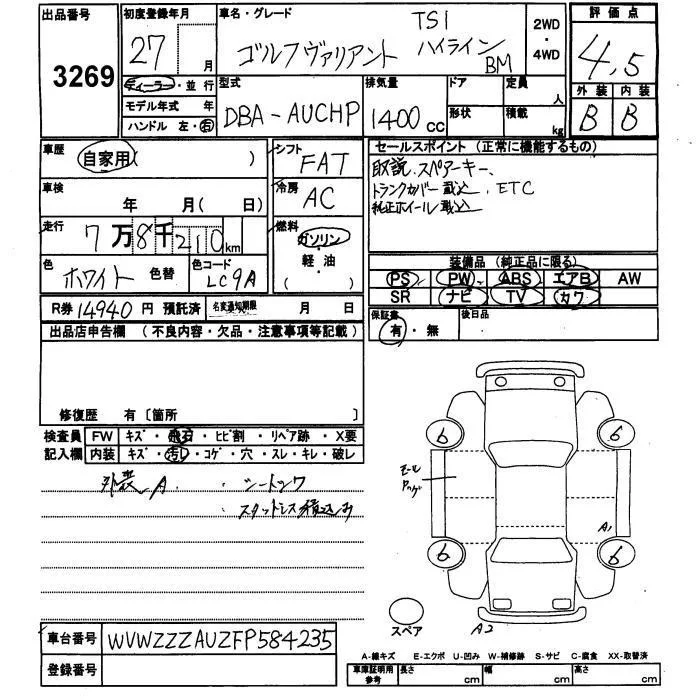 出品番号
3269
初度登録年月
27 月
車名・グレード
TSI
ゴルフヴァリアント ハイライン
BM
2WD
・
4WD
評価点
4.5
外装 内装
B B
ディーラー・並行
モデル年式 年
ハンドル 左・右
型式
DBA-AUCHP
排気量
1400cc
ドア
形状
定員
人
積載
kg
車歴
自家用( )
シフト
FAT
車検
年 月( 日)
冷房
AC
走行
7万8千210km
燃料
ガソリン
・
軽・油
( )
色
ホワイト 色替
色コード
LC9A
R券 14940円 預託済
名変通知期限 月 日
セールスポイント(正常に機能するもの)
取説、スペアーキー、
トランクカバー載込、ETC
純正ホイール載込
装備品(純正品に限る)
PS PW ABS エアB AW
SR ナビ TV カワ
保証書
有・無
後日品
出品店申告欄(不良内容・欠品・注意事項等記載)
修復歴 有〔箇所
検査員 FW キズ・飛石・ヒビ割・リペア跡・X要
記入欄 内装 キズ・汚レ・コゲ・穴・スレ・キレ・破レ
外装A ・シートシワ
・スタットレス積込み
6 6
モール
A1
6 6
スペア
A2
車台番号 WVWZZZAUZFP584235
登録番号
A-線キズ E-エクボ U-凹み W-補修跡 S-サビ C-腐食 XX-取替済
車庫証明用
参考
長さ cm 幅 cm 高さ cm